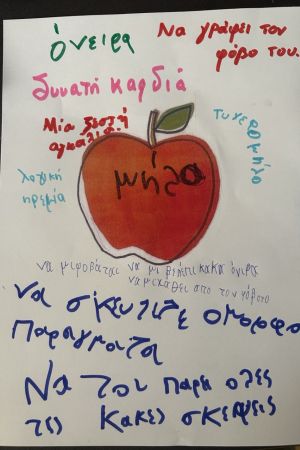 όνειρα
Να γράψει τον
φόβο του.
δυνατή καρδιά
Μία ζεστή
αγκαλιά.
Τυχερόμηλο
λογική
ηρεμία
μήλο
να μιφοβάται να μι βλέπει κακά όνειρα
να μιχαθει στο τον φόβοτο
να σκευτιτε ομορφα
Παραγματα
Να του παρι ολες
τις κακες σκεψεις